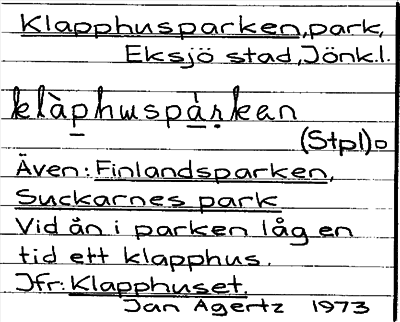 Klapphusparken, park,
Eksjö stad, Jönk.l.
klàphuspàrkan
(Stpl)o
Även: Finlandsparken,
Suckarnes park
Vid ån i parken låg en
tid ett klapphus.
Jfr: Klapphuset.
Jan Agertz 1973